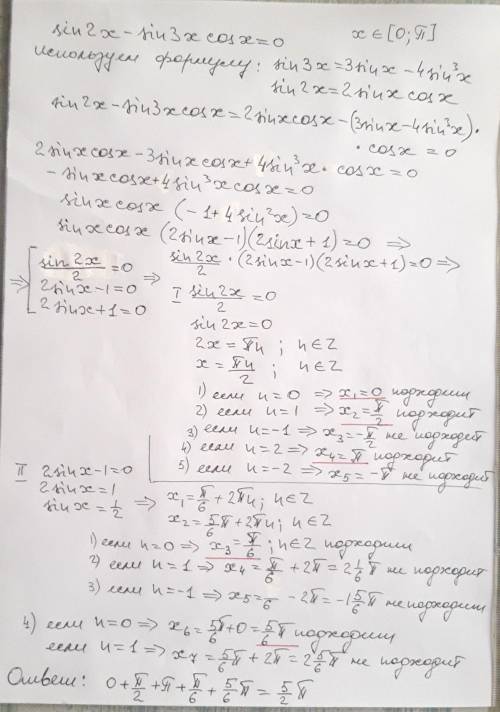 sin2x - sin3x cosx = 0 x ∈ [0; π]
используем формулу: sin3x = 3sinx - 4sin³x
sin2x = 2sinx cosx
sin2x - sin3x cosx = 2sinxcosx - (3sinx - 4sin³x)·
· cosx = 0
2sinxcosx - 3sinxcosx + 4sin³x · cosx = 0
- sinxcosx + 4sin³x cosx = 0
sinxcosx (-1 + 4sin²x) = 0
sinxcosx (2sinx - 1)(2sinx + 1) = 0 ⇒
⇒ [ sin2x/2 = 0 ⇒ sin2x/2 · (2sinx - 1)(2sinx + 1) = 0 ⇒
2sinx - 1 = 0
2sinx + 1 = 0
I sin2x/2 = 0
sin2x = 0
2x = πn ; n ∈ Z
x = πn/2 ; n ∈ Z
1) если n = 0 ⇒ x₁ = 0 подходит
2) если n = 1 ⇒ x₂ = π/2 подходит
3) если n = -1 ⇒ x₃ = -π/2 не подходит
4) если n = 2 ⇒ x₄ = π подходит
5) если n = -2 ⇒ x₅ = -π не подходит
II 2sinx - 1 = 0
2sinx = 1
sinx = 1/2 ⇒ x₁ = π/6 + 2πn; n ∈ Z
x₂ = 5/6 π + 2πn; n ∈ Z
1) если n = 0 ⇒ x₃ = π/6 ; n ∈ Z подходит
2) если n = 1 ⇒ x₄ = π/6 + 2π = 2 1/6 π не подходит
3) если n = -1 ⇒ x₅ = /6 - 2π = -1 5/6 π не подходит
4) если n = 0 ⇒ x₆ = 5π/6 + 0 = 5/6 π подходит
если n = 1 ⇒ x₇ = 5/6 π + 2π = 2 5/6 π не подходит
Ответ: 0 + π/2 + π + π/6 + 5/6 π = 5/2 π